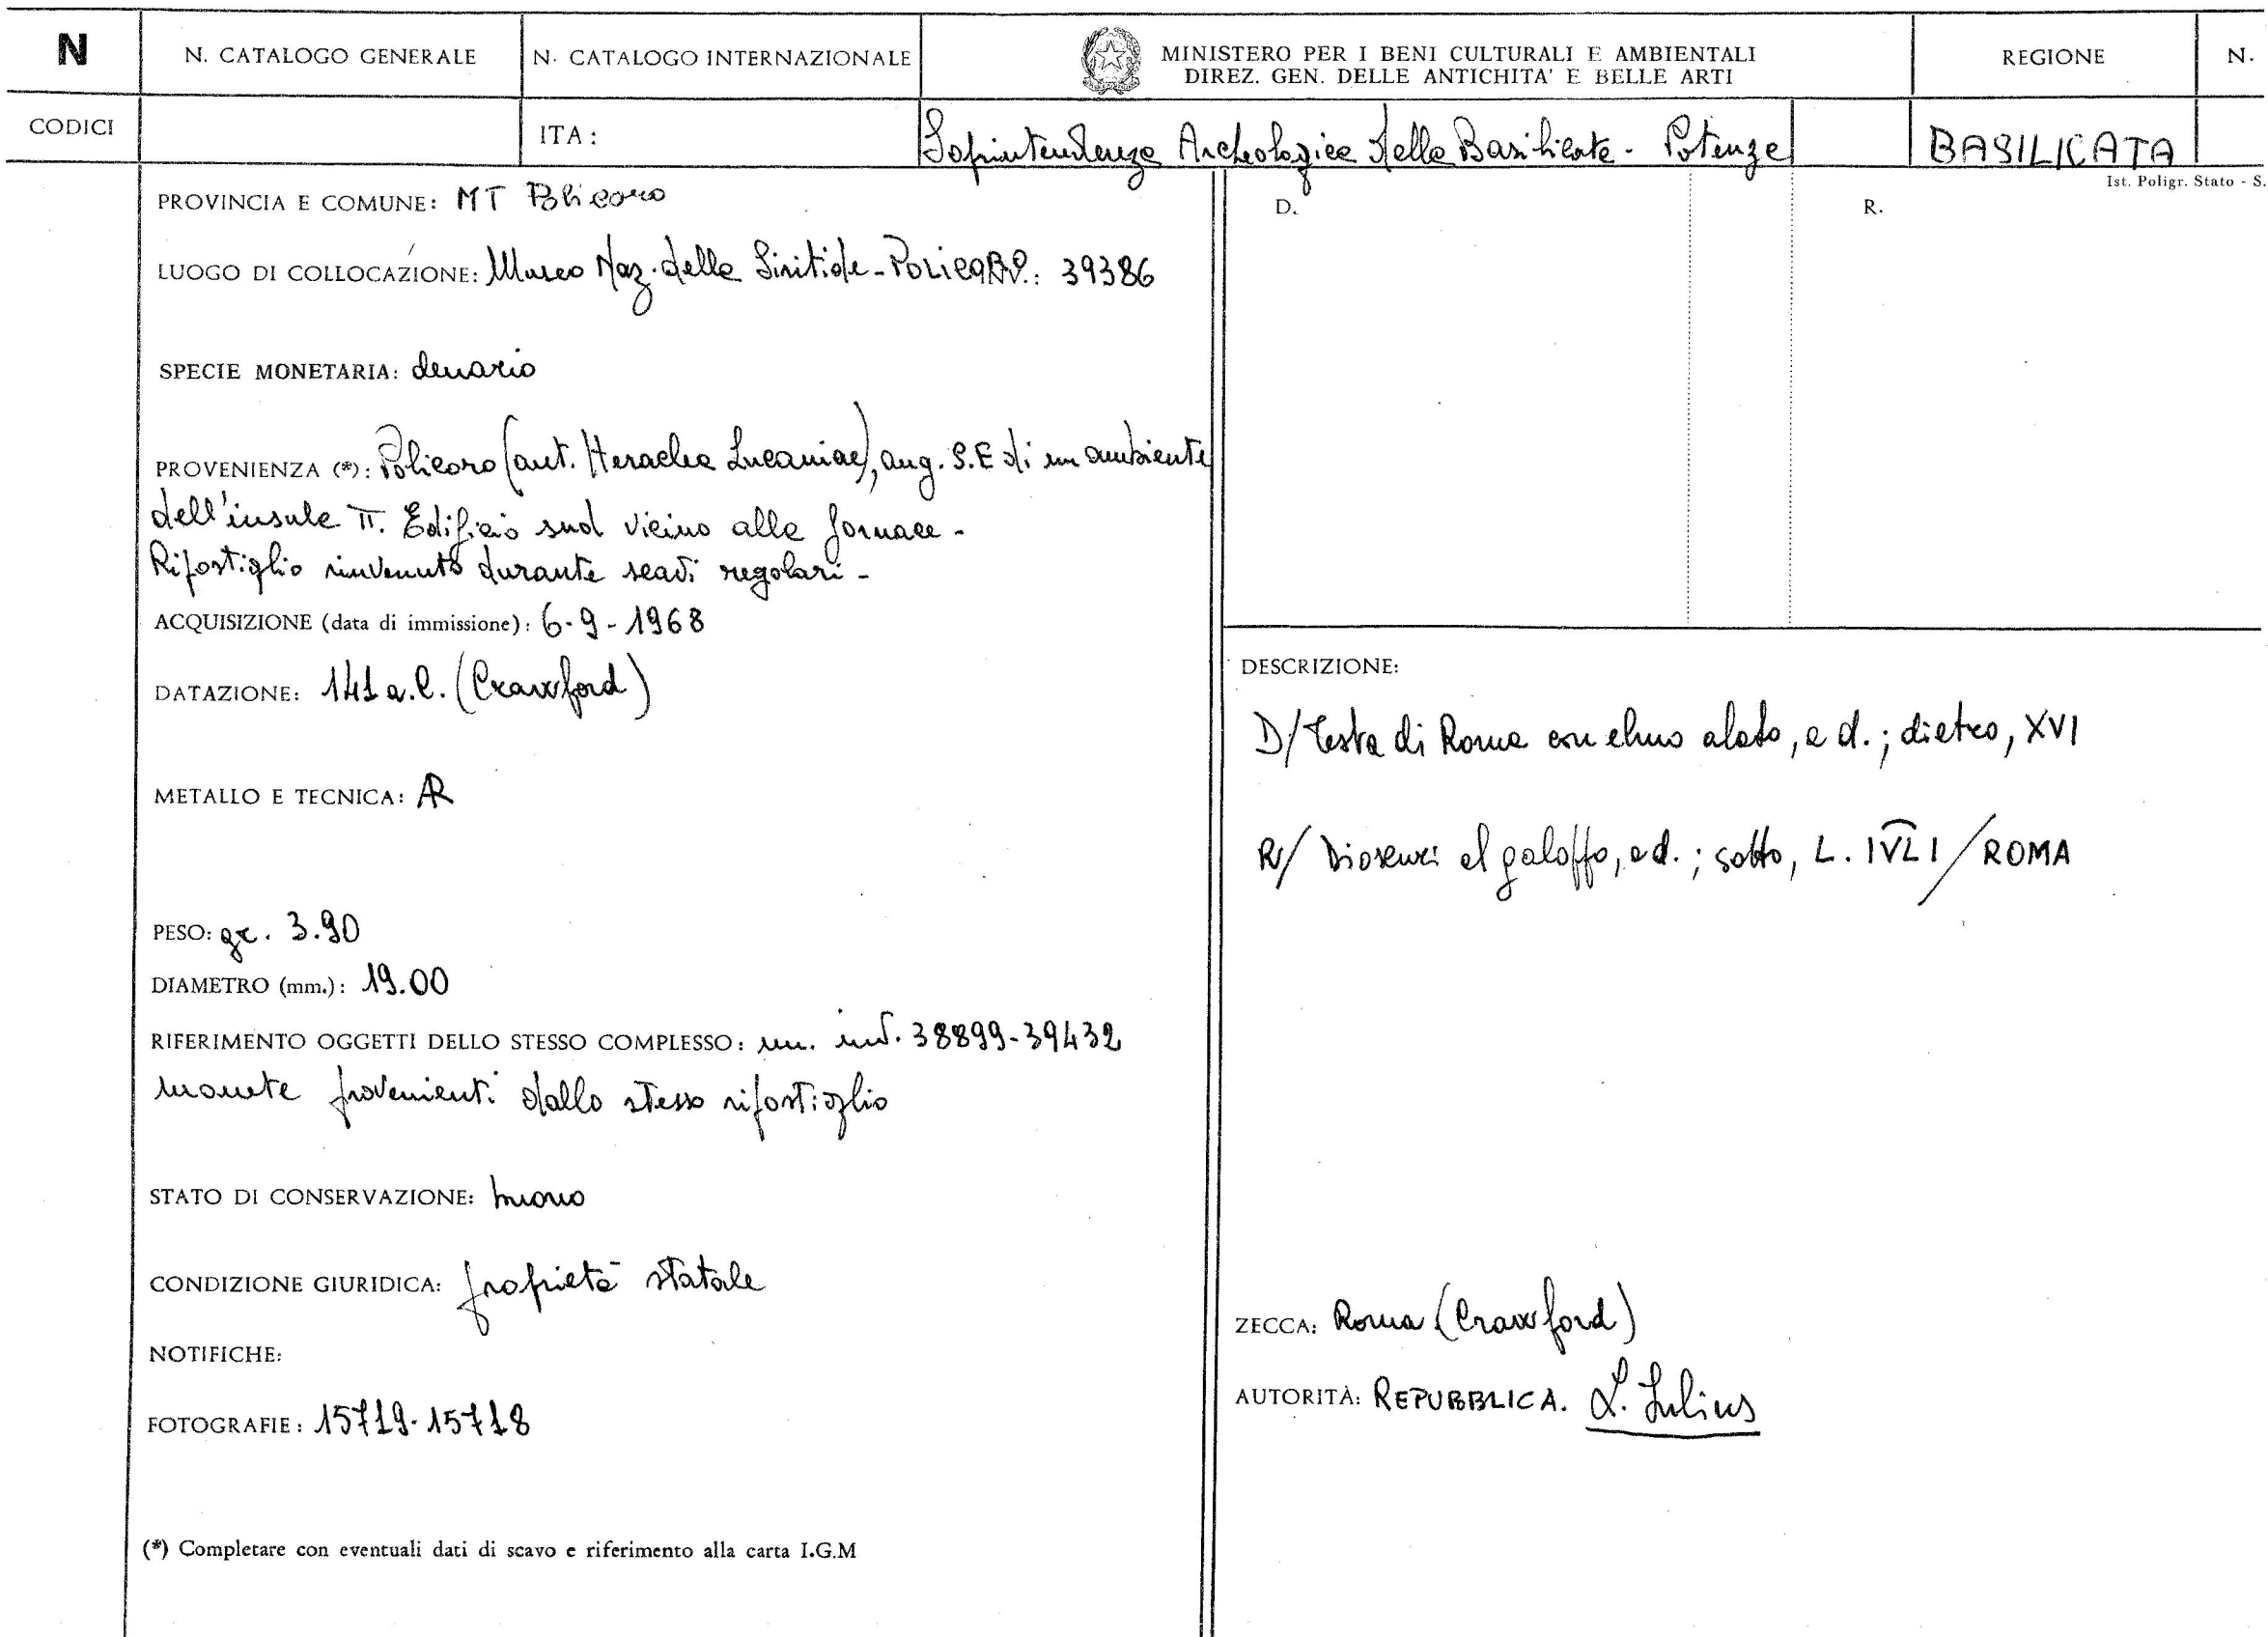 N
N. CATALOGO GENERALE
N. CATALOGO INTERNAZIONALE
MINISTERO PER I BENI CULTURALI E AMBIENTALI
DIREZ. GEN. DELLE ANTICHITA' E BELLE ARTI
REGIONE
N.
CODICI
ITA:
Soprintendenza Archeologica della Basilicata - Potenza
BASILICATA
Ist. Poligr. Stato - S.
PROVINCIA E COMUNE: MT Policoro
LUOGO DI COLLOCAZIONE: Museo Naz. della Siritide - POLICORO: 39386
SPECIE MONETARIA: denario
PROVENIENZA (*): Policoro (ant. Heraclea Lucaniae), ang. S.E di un ambiente
dell'insula II. Edificio sud vicino alla fornace -
Ripostiglio rinvenuto durante scavi regolari -
ACQUISIZIONE (data di immissione): 6-9-1968
DATAZIONE: 141 a.C. (Crawford)
METALLO E TECNICA: AR
PESO: gr. 3.90
DIAMETRO (mm.): 19.00
RIFERIMENTO OGGETTI DELLO STESSO COMPLESSO: nn. inv. 38899-39432
monete provenienti dallo stesso ripostiglio
STATO DI CONSERVAZIONE: buono
CONDIZIONE GIURIDICA: proprietà statale
NOTIFICHE:
FOTOGRAFIE: 15719-15718
(*) Completare con eventuali dati di scavo e riferimento alla carta I.G.M
D.
R.
DESCRIZIONE:
D/ Testa di Roma con elmo alato, a d.; dietro, XVI
R/ Dioscuri al galoppo, a d.; sotto, L. IVLI / ROMA
ZECCA: Roma (Crawford)
AUTORITÀ: REPUBBLICA. L. Iulius